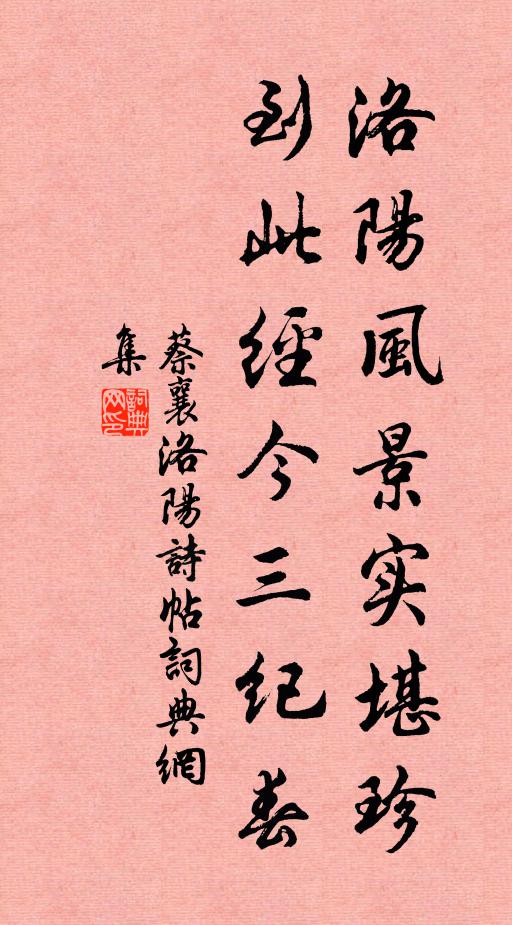 洛陽風景实堪珍
到此經今三紀春
蔡襄洛陽詩帖詞典網
集
詞典网印